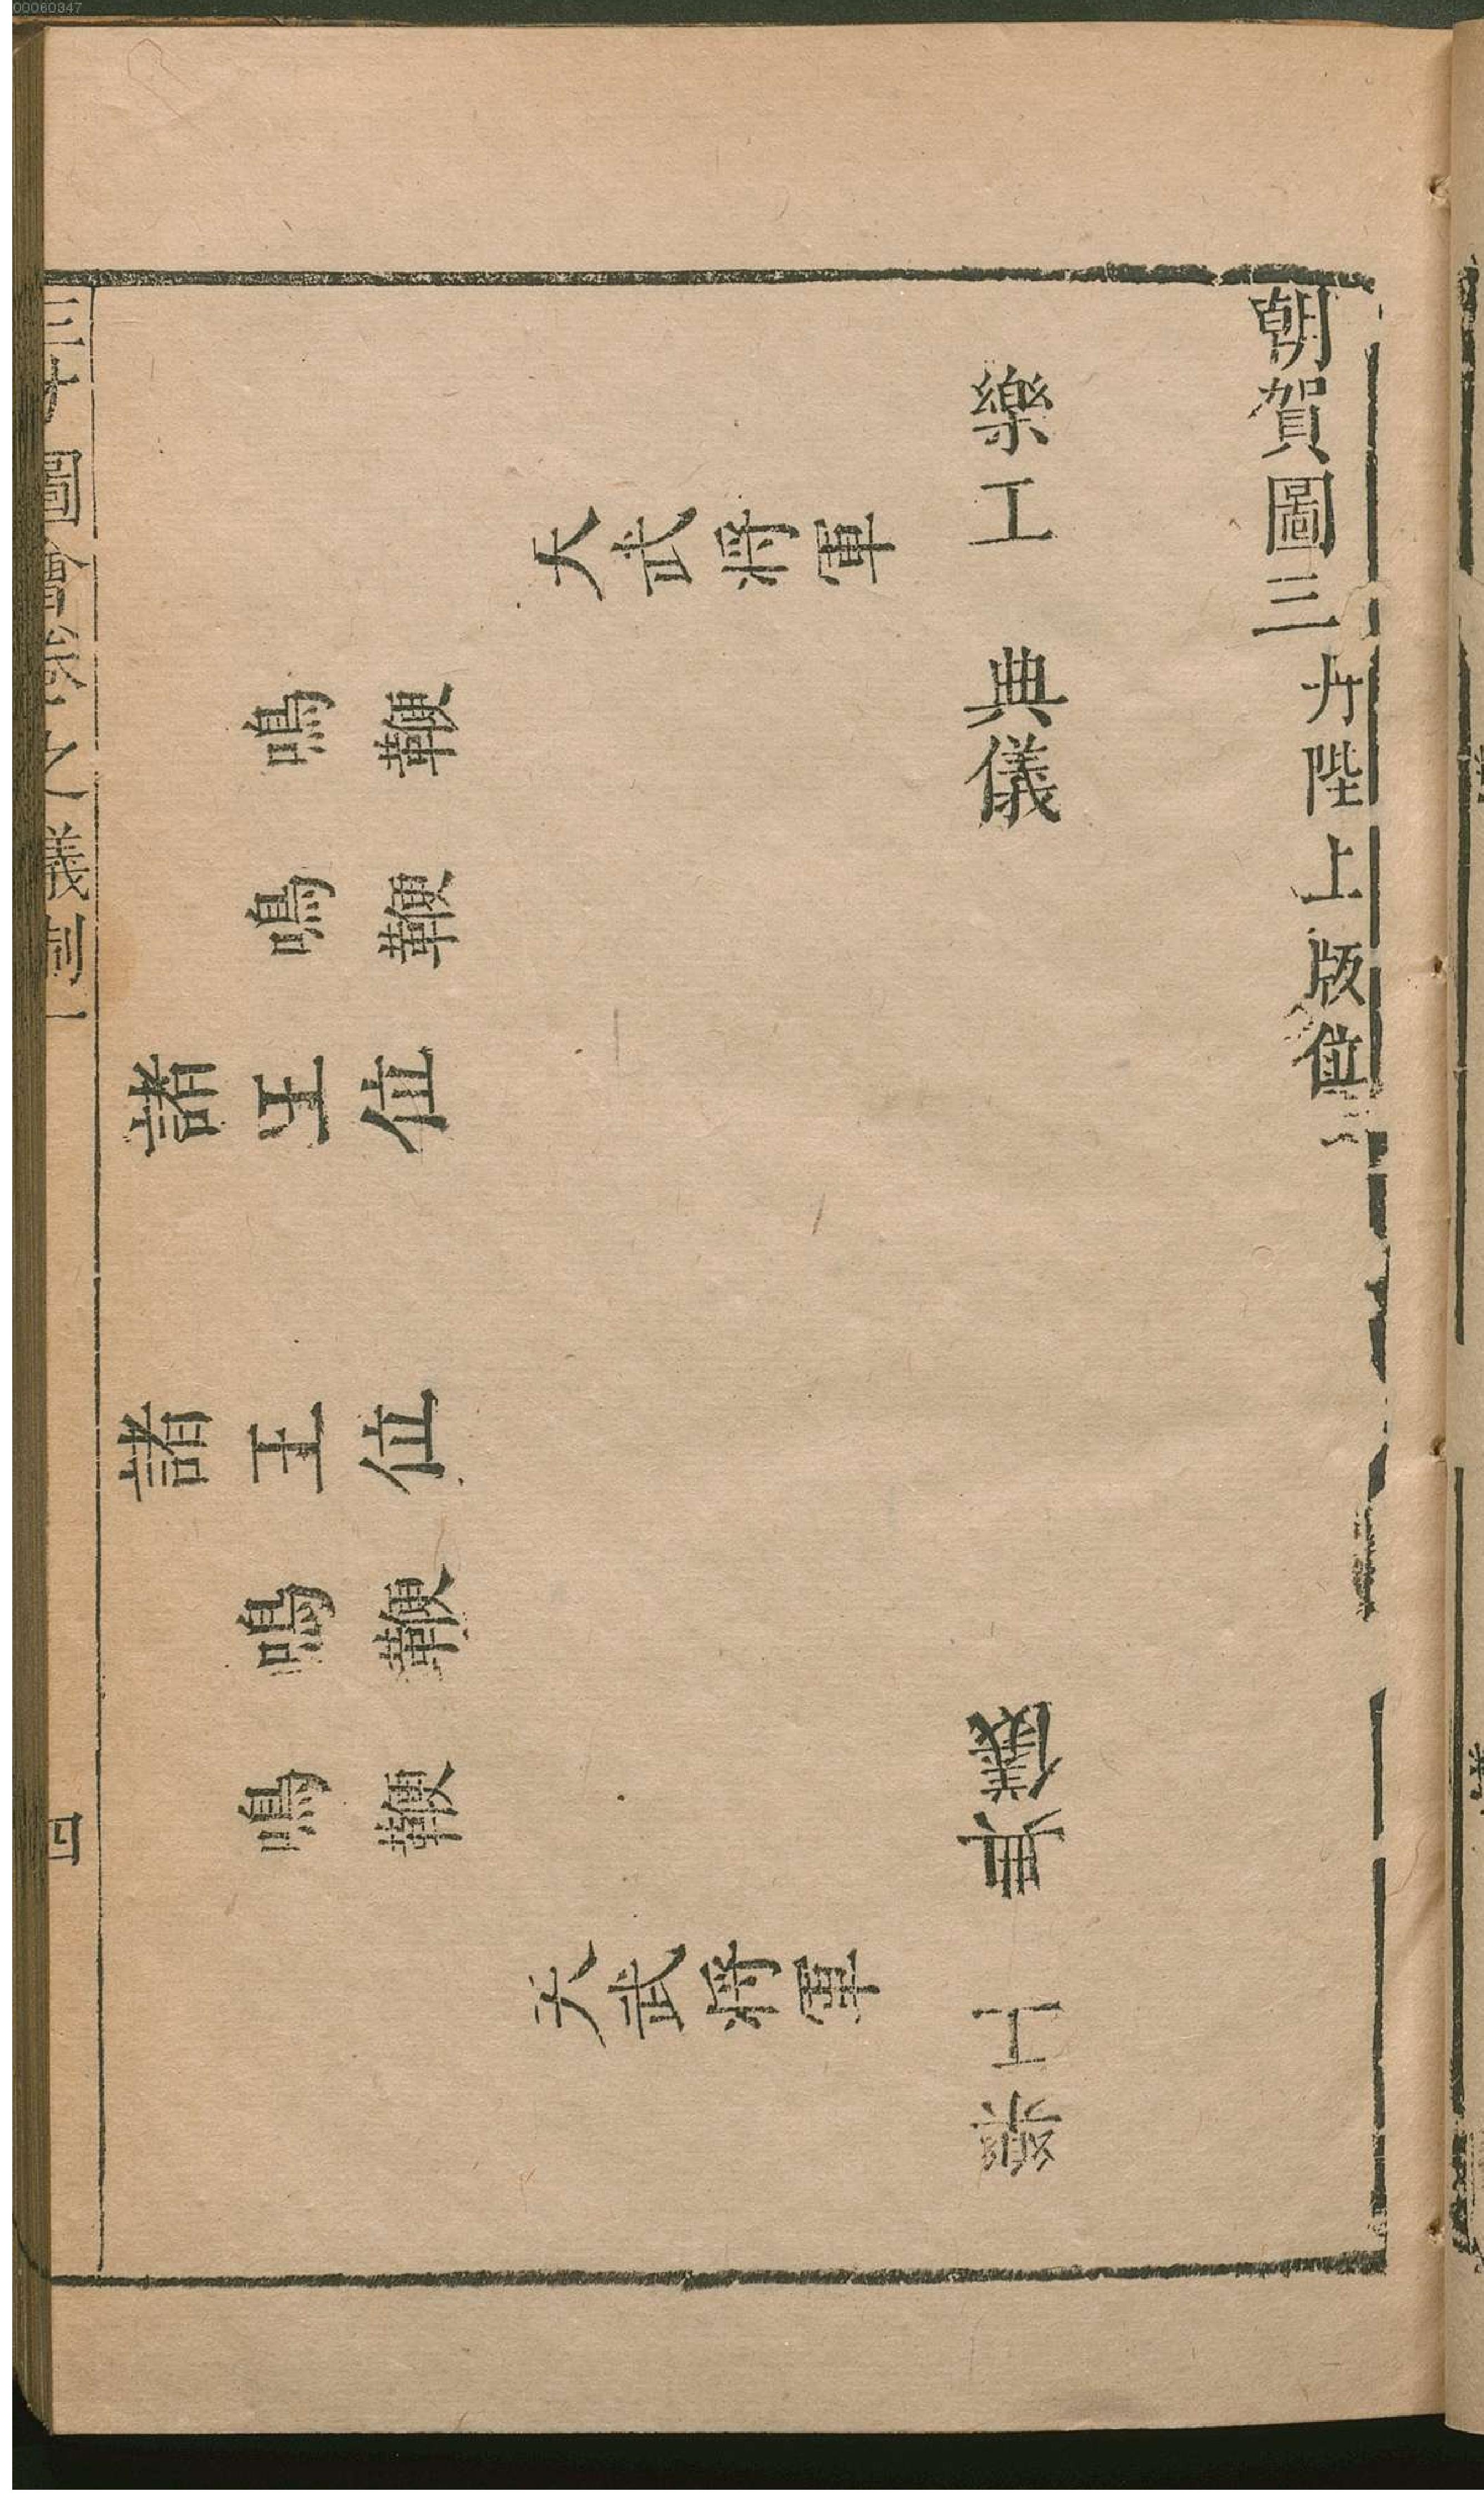 朝賀圖三 丹陛上版位
樂工
典儀
典儀
樂工
天武將軍
天武將軍
鳴鞭
鳴鞭
諸王位
諸王位
鳴鞭
鳴鞭
三才圖會卷之儀制一
四
00060347